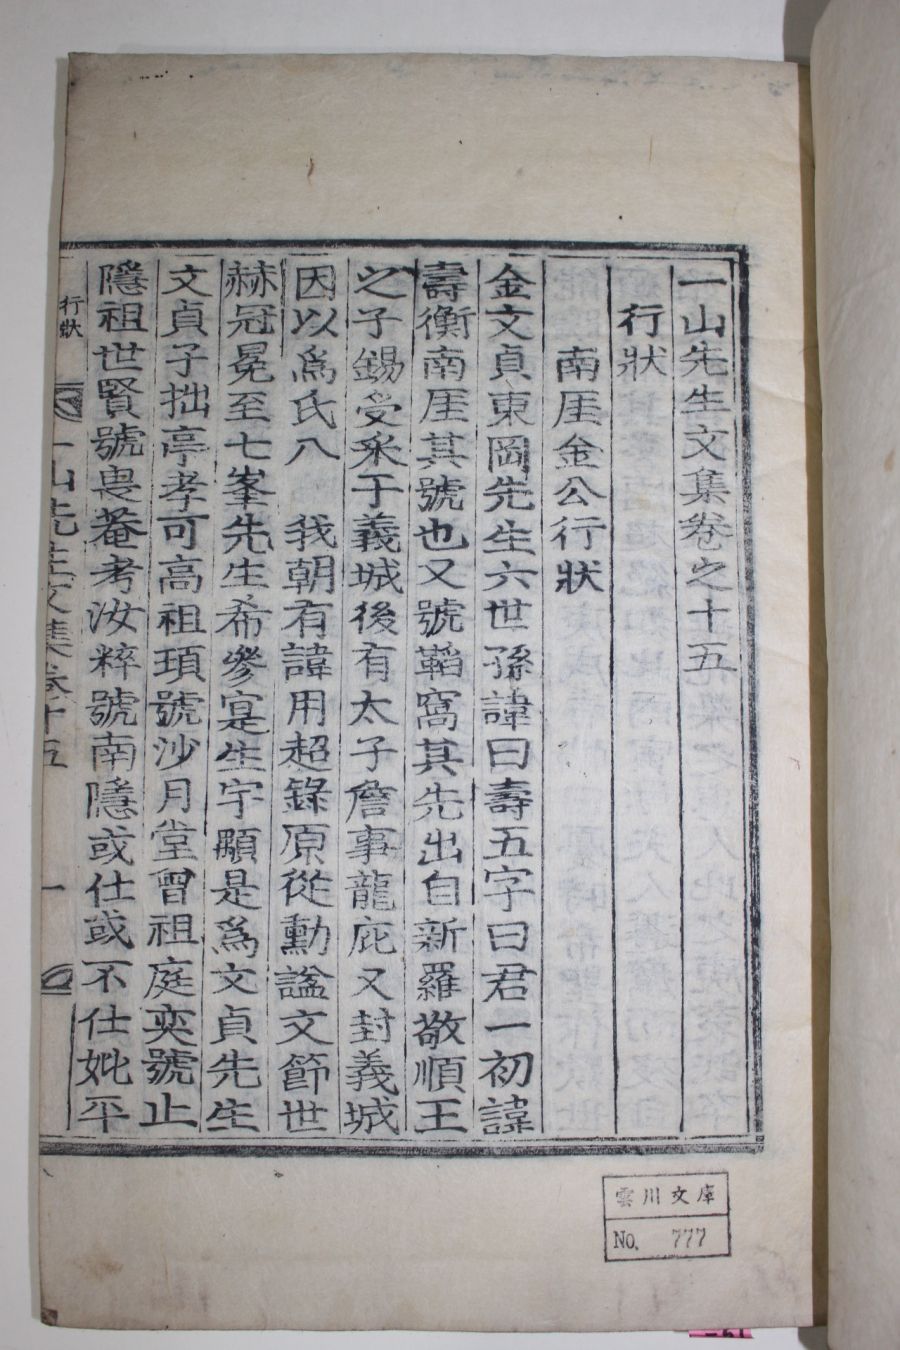 一山先生文集卷之十五
行狀
南厓金公行狀
金文貞東岡先生六世孫諱曰壽五字曰君一初諱
壽衡南厓其號也又號韜窩其先出自新羅敬順王
之子錫受采于義城後有太子詹事龍庇又封義城
因以爲氏入 我朝有諱用超錄原從勳諡文節世
赫冠冕至七峯先生希參寔生宇顒是爲文貞先生
文貞子拙亭孝可高祖頊號沙月堂曾祖庭奕號止
隱祖世賢號畏菴考汝粹號南隱或仕或不仕妣平
行狀
一山先生文集卷十五
一
雲川文庫
No. 777